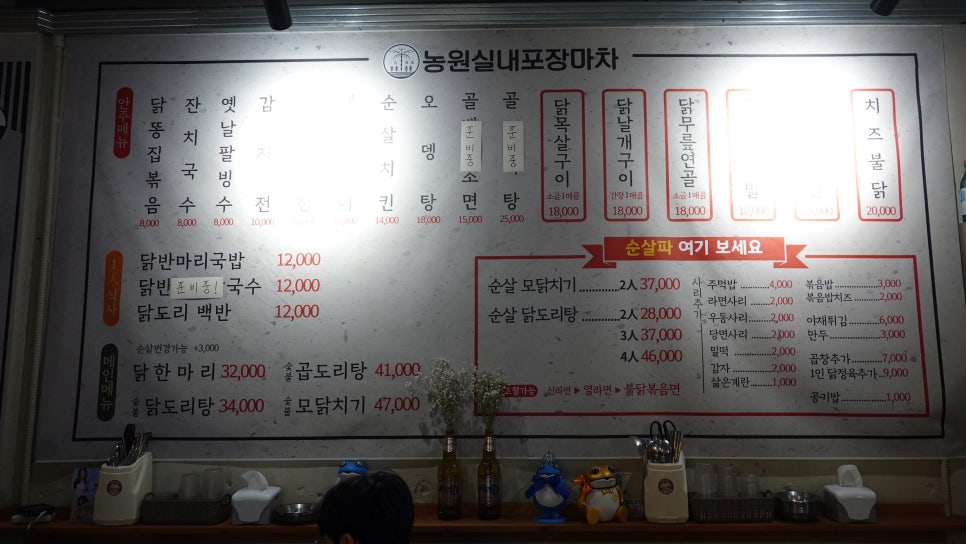 농원실내포장마차
안주메뉴
닭똥집볶음 8,000
잔치국수 8,000
옛날팥빙수 8,000
감자전 10,000
순살치킨 14,000
오뎅탕 18,000
골 준비중 소면 15,000
골 준비중 탕 25,000
닭목살구이 소금|매콤 18,000
닭날개구이 간장|매콤 18,000
닭무릎연골 소금|매콤 18,000
발 18,000
치즈불닭 20,000
1人식사
닭반마리국밥 12,000
닭반 준비중! 국수 12,000
닭도리 백반 12,000
메인메뉴
순살변경가능 +3,000
닭한마리 32,000
숯불 곱도리탕 41,000
숯불 닭도리탕 34,000
숯불 모닭치기 47,000
순살파 여기 보세요
순살 모닭치기 2人 37,000
순살 닭도리탕 2人 28,000
3人 37,000
4人 46,000
신라면 ▶ 열라면 ▶ 불닭볶음면
사리추가
주먹밥 4,000
라면사리 2,000
우동사리 2,000
당면사리 2,000
밀떡 2,000
감자 2,000
삶은계란 1,000
볶음밥 3,000
볶음밥치즈 2,000
야채튀김 6,000
만두 3,000
곱창추가 7,000
1인 닭정육추가 9,000
공기밥 1,000